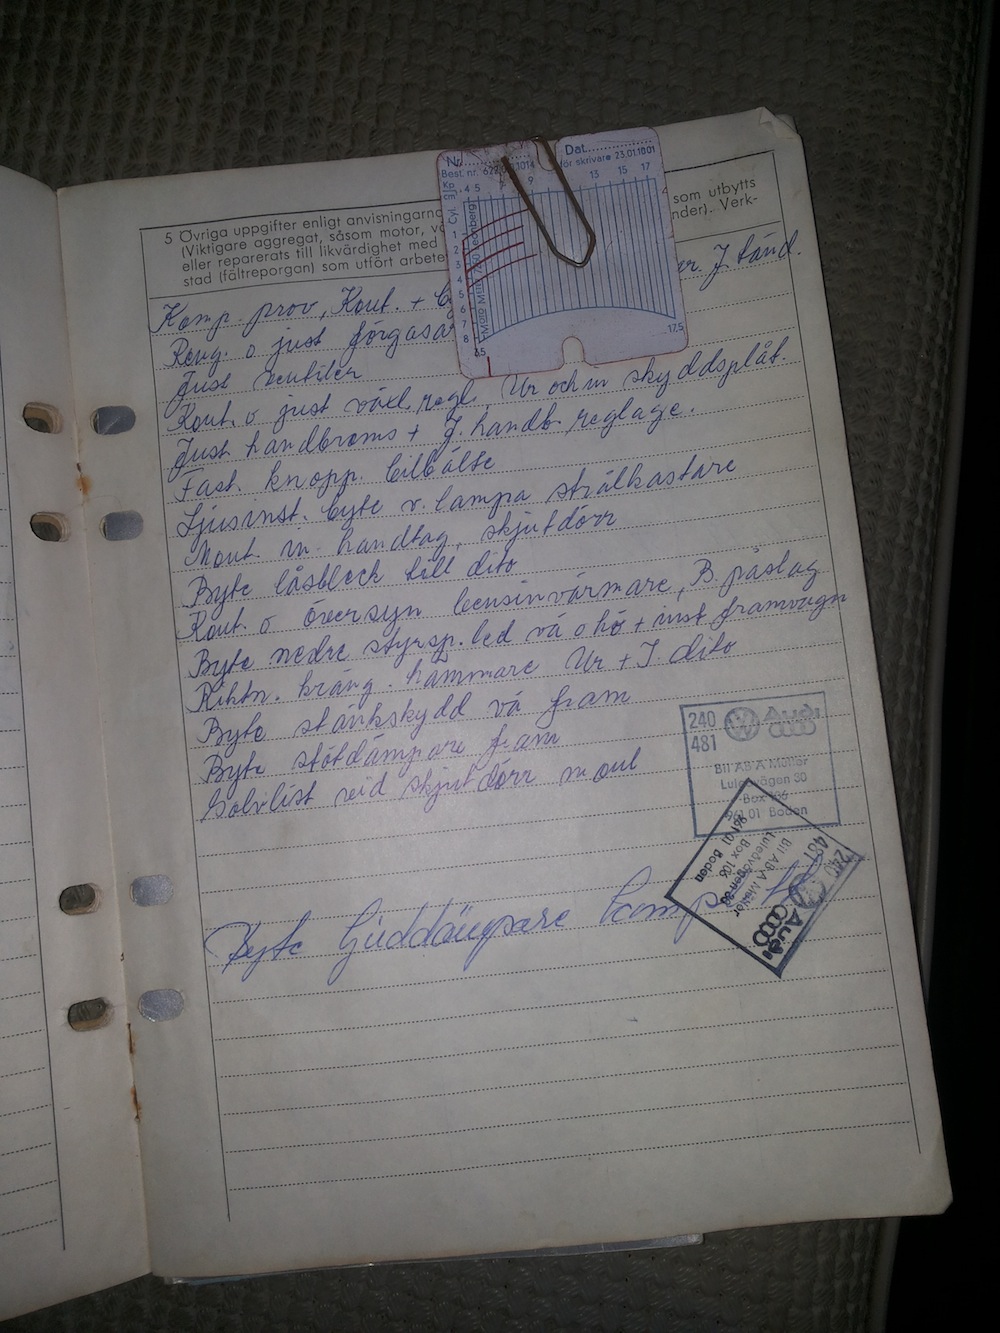 Nr.......... Dat..........
Best. nr. 1014 för skrivare 23.01.1001
Kp
4 5 7 9 13 15 17
Cyl.
1
2
3
4
5
6
7
8
3,5 17,5
5 Övriga uppgifter enligt anvisningarna som utbytts
(Viktigare aggregat, såsom motor, nder). Verk-
eller reparerats till likvärdighet med
stad (fältreporgan) som utfört arbete
Komp. prov, Kont. + J tänd.
Reng. o just förgasa
Just ventiler
Kont. o just växl.regl. Ur och m skyddsplåt.
Just handbroms + J. handb.reglage.
Fast. knopp. bilbälte
Ljusinst. byte v. lampa strålkastare
Mont. m. handtag, skjutdörr
Byte låsbleck till dito
Kont. o översyn bensinvärmare, B. påslag
Byte nedre styrsp.led vä o hö + inst framvagn
Riktn. kräng.hämmare Ur + I dito
Byte stänkskydd vä fram
Byte stötdämpare fram
Golvlist vid skjutdörr mont
240
481
Audi
Bil AB A Møller
Luleåvägen 30
Box 106
961 01 Boden
Byte ljuddämpare komp.
240
481
Audi
Bil AB A Møller
Luleåvägen 30
Box 106
961 01 Boden